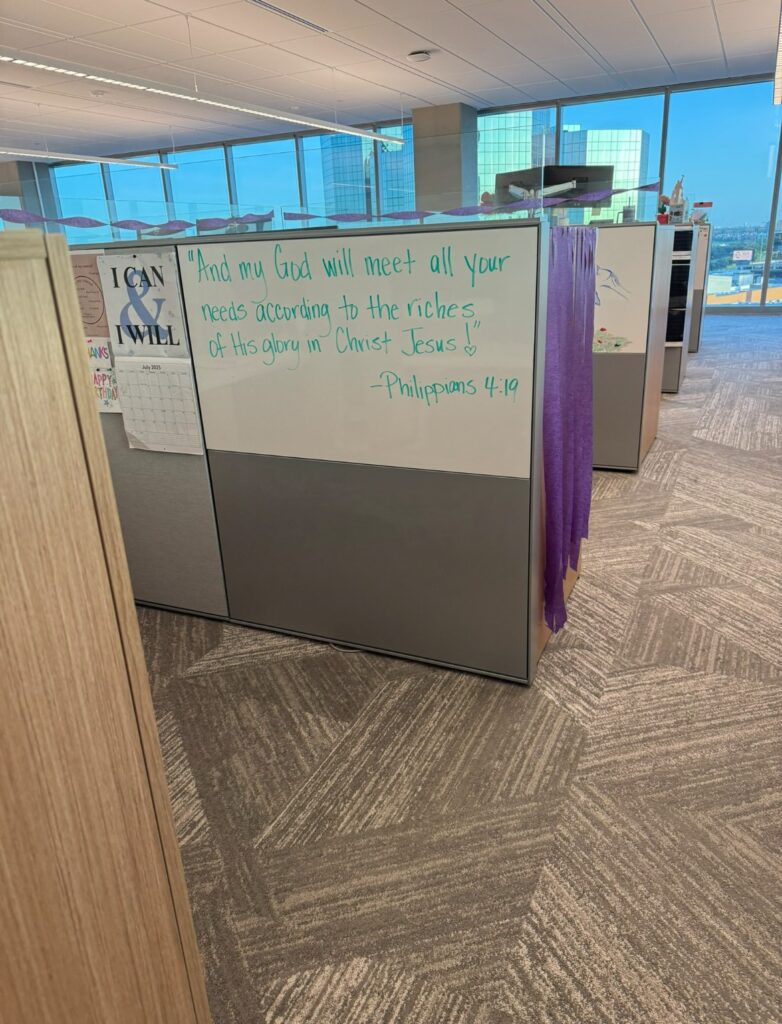 I CAN
&
I WILL
July 2025
HAPPY
"And my God will meet all your
needs according to the riches
of His glory in Christ Jesus!"
-Philippians 4:19